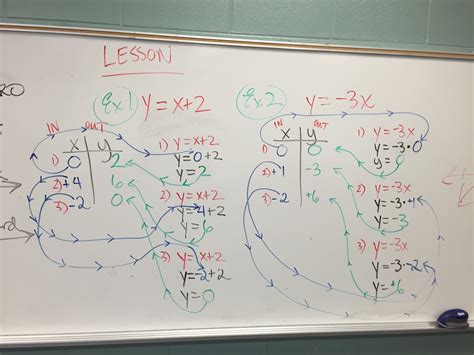 LESSON
RO
Ex 1 y = x+2
IN OUT
x y
1) 0 2
2) +4 6
3) -2 0
1) y = x+2
y = 0+2
y = 2
2) y = x+2
y = 4+2
y = 6
3) y = x+2
y = -2+2
y = 0
Ex 2 y = -3x
IN OUT
x y
1) 0 0
2) +1 -3
3) -2 +6
1) y = -3x
y = -3·0
y = 0
2) y = -3x
y = -3·1
y = -3
3) y = -3x
y = -3·-2
y = +6
rd